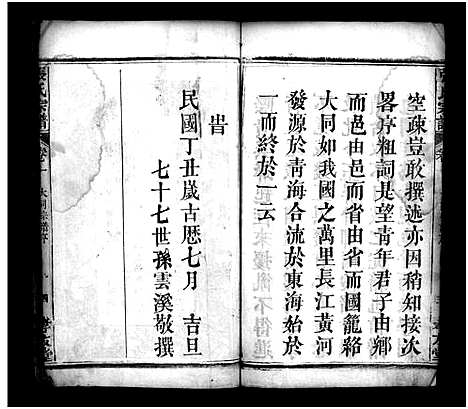 空疎豈敢撰述亦因稍知接次
畧序粗詞是望青年君子由鄉
而邑由邑而省由省而國籠絡
大同如我國之萬里長江黃河
發源於青海合流於東海始於
一而終於一云
旹
民國丁丑歲古曆七月　吉旦
七十七世孫雲溪敬撰
氏宗譜
卷一